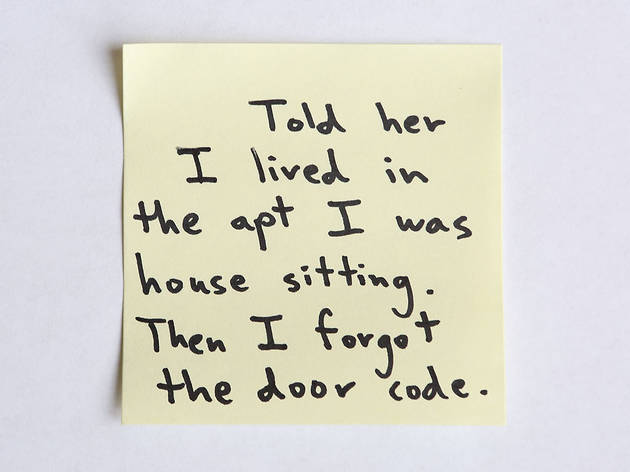 Told her
I lived in
the apt I was
house sitting.
Then I forgot
the door code.